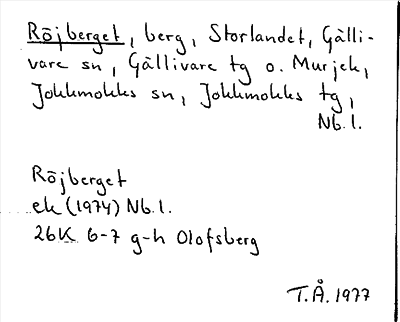 Röjberget, berg, Storlandet, Gälli-
vare sn, Gällivare tg o. Murjek,
Jokkmokks sn, Jokkmokks tg,
Nb. l.
Röjberget
ek (1974) Nb. l.
26K 6-7 g-h Olofsberg
T.Å. 1977